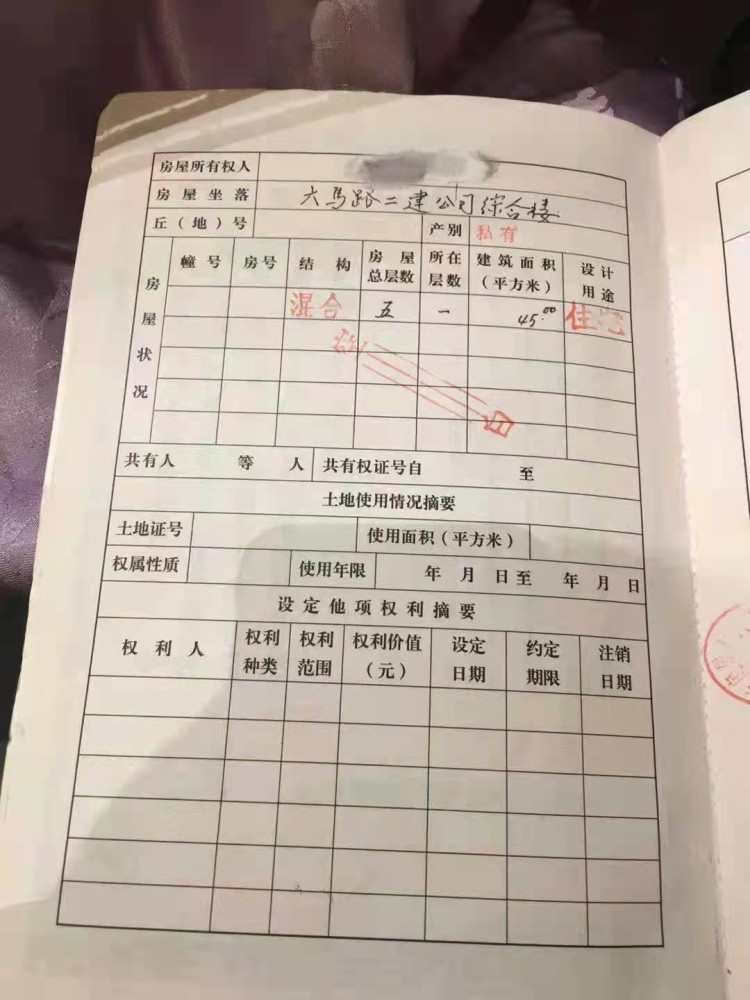 房屋所有权人
房屋坐落 六马路二建公司综合楼
丘（地）号 产别 私有
房屋状况 幢号 房号 结构 房屋总层数 所在层数 建筑面积（平方米） 设计用途
混合 五 一 45.00 住宅
以 白
共有人 等 人 共有权证号自 至
土地使用情况摘要
土地证号 使用面积（平方米）
权属性质 使用年限 年 月 日至 年 月 日
设定他项权利摘要
权利人 权利种类 权利范围 权利价值（元） 设定日期 约定期限 注销日期